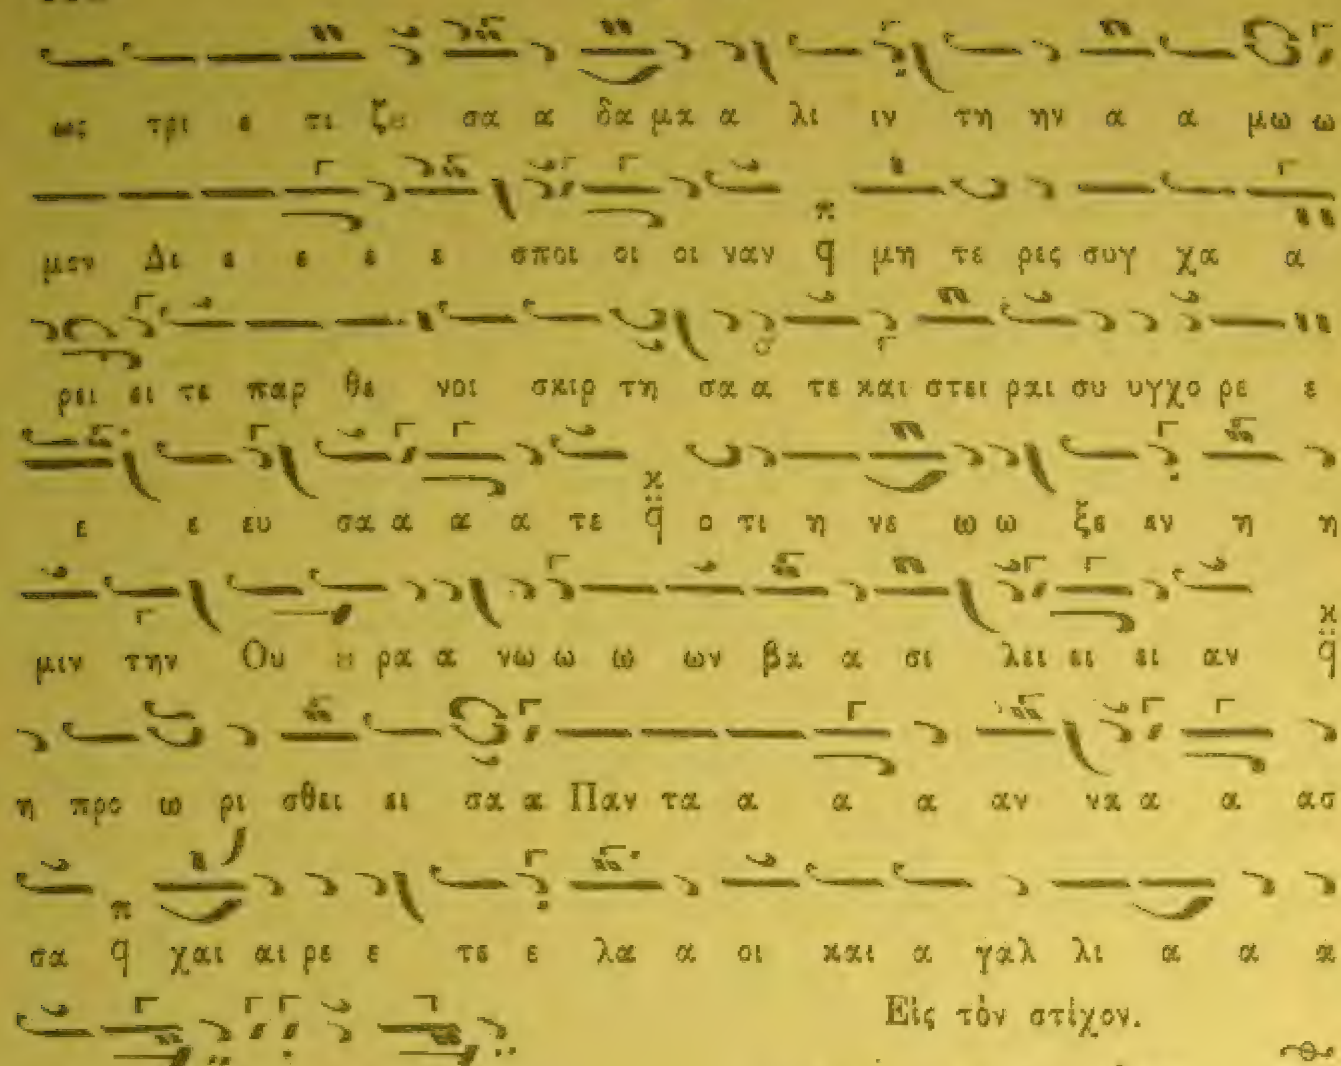 ως τρι ε τι ζου σα α δα μα α λι ιν τη ην α α μω ω
μον Δι ε ε ε ε σποι οι οι ναν π q μη τε ρες συγ χα α
ρει ει τε παρ θε νοι σκιρ τη σα α τε και στει ραι συ υγχο ρε ε
ε ε ευ σα α α α τε κ q ο τι η νε ω ω ξε εν η η
μιν την Ου ου ρα α νω ω ω ων βα α σι λει ει ει αν κ q
η προ ω ρι σθει ει σα α Παν τα α α α αν να α α ασ
σα π q χαι αι ρε ε τε ε λα α οι και α γαλ λι α α α
Εἰς τὸν στίχον.